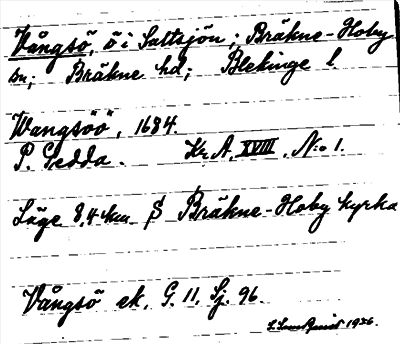 Vångsö, ö i Saltsjön; Bräkne-Hoby
sn; Bräkne hd; Blekinge l.
"Wangsöö", 1684.
P. Gedda. Kr. A. XVIII. N:o 1.
Läge 8,4 km. S Bräkne-Hoby kyrka
Vångsö ek. G. 11. Sj. 96.
1926.